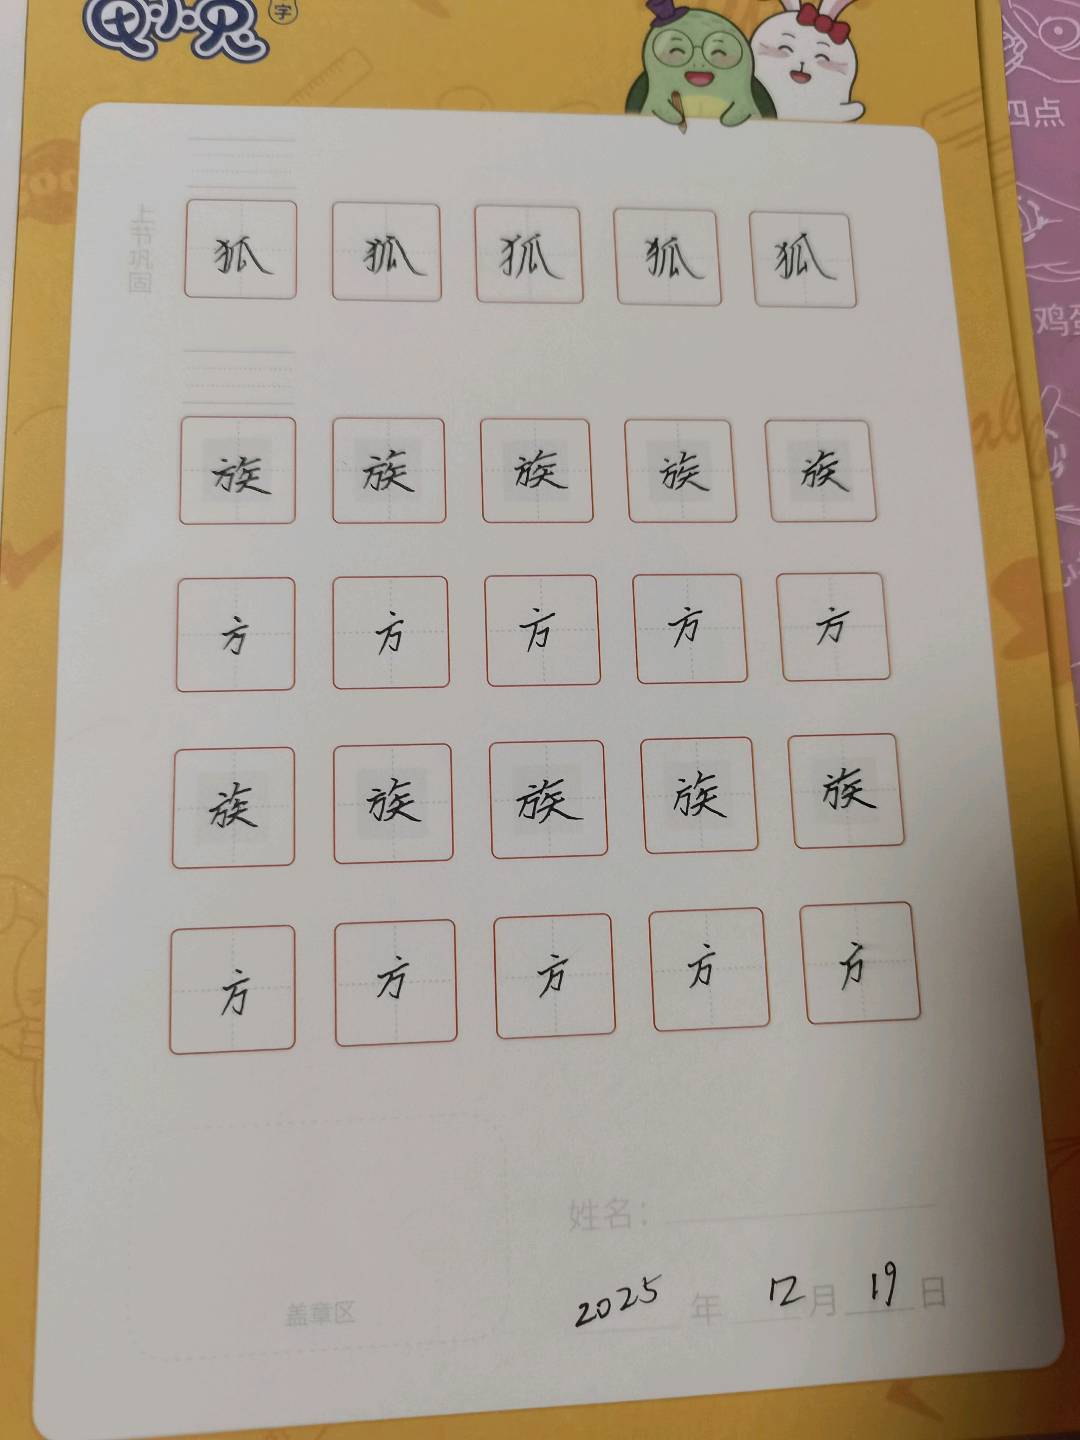 田小兔
字
四点
鸡蛋
上节巩固
狐 狐 狐 狐 狐
族 族 族 族 族
方 方 方 方 方
族 族 族 族 族
方 方 方 方 方
姓名：
2025 年 12 月 19 日
盖章区